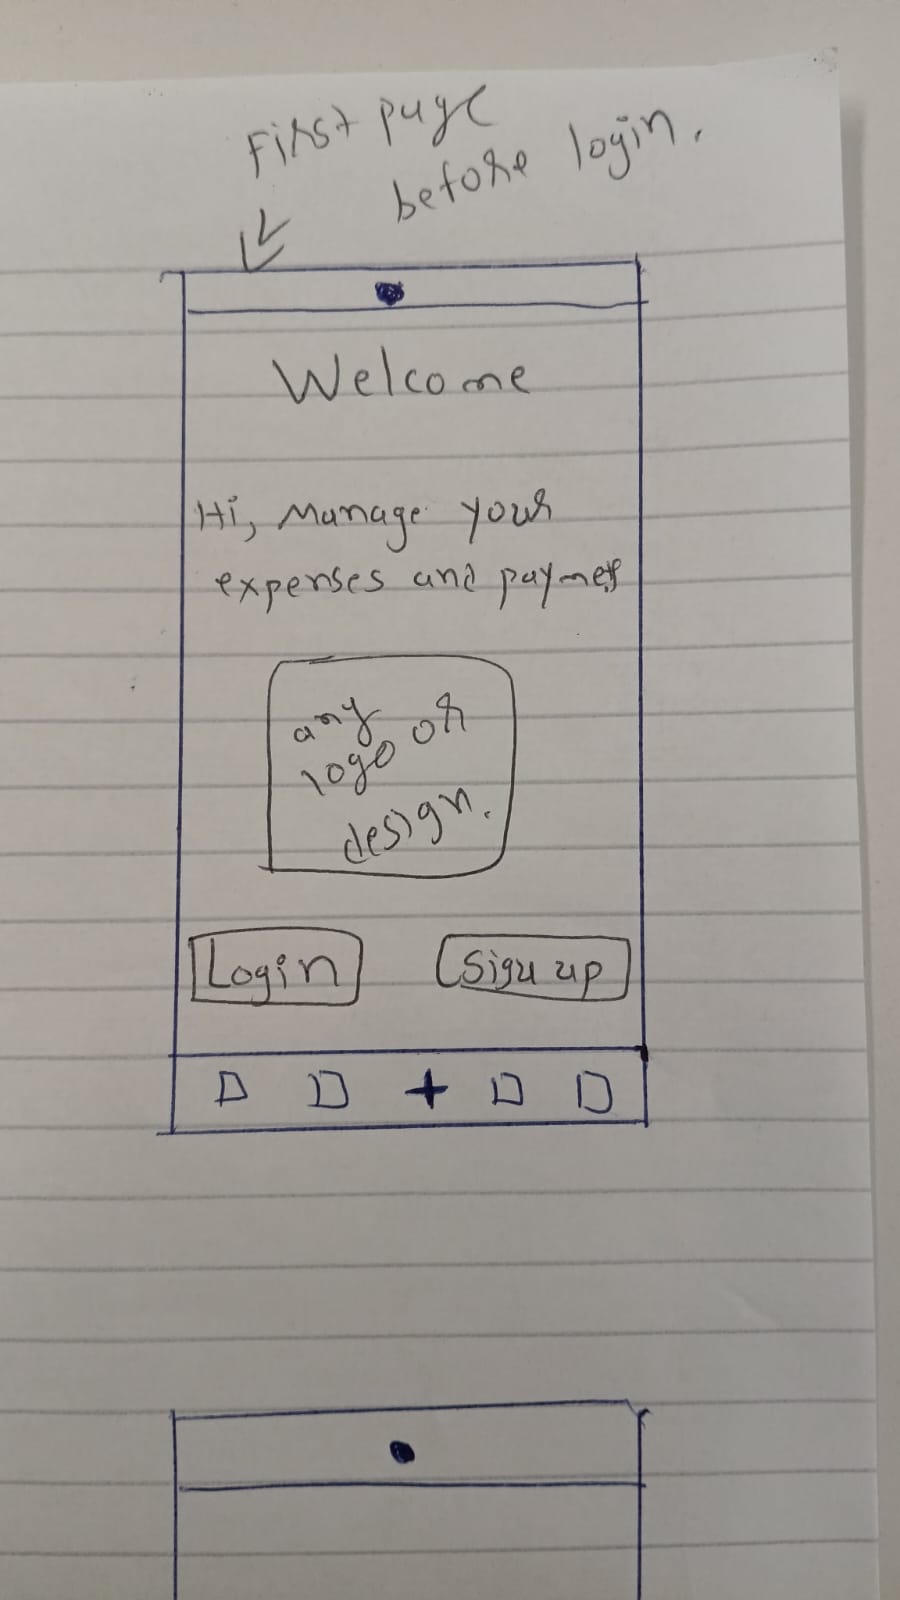 First page
before login.
Welcome
Hi, Manage your
expenses and paymets
any
logo or
design.
Login
Sign up
+